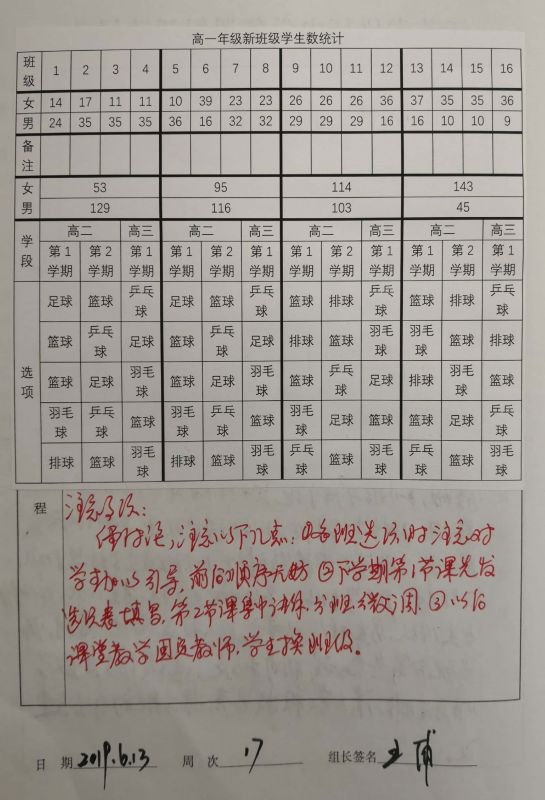 高一年级新班级学生数统计
班级 1 2 3 4 5 6 7 8 9 10 11 12 13 14 15 16
女 14 17 11 11 10 39 23 23 26 26 26 36 37 35 35 36
男 24 35 35 35 36 16 32 32 29 29 29 16 16 10 10 9
备注
女 53 95 114 143
男 129 116 103 45
学段 高二 高三 高二 高三 高二 高三 高二 高三
第1学期 第2学期 第1学期 第1学期 第2学期 第1学期 第1学期 第2学期 第1学期 第1学期 第2学期 第1学期
选项
足球 篮球 乒乓球 足球 篮球 乒乓球 篮球 排球 乒乓球 篮球 排球 乒乓球
篮球 乒乓球 足球 篮球 乒乓球 足球 排球 篮球 羽毛球 羽毛球 篮球 排球
篮球 足球 羽毛球 篮球 足球 羽毛球 篮球 乒乓球 足球 排球 羽毛球 篮球
羽毛球 乒乓球 篮球 羽毛球 乒乓球 篮球 羽毛球 足球 篮球 篮球 足球 乒乓球
排球 篮球 羽毛球 排球 篮球 羽毛球 乒乓球 篮球 羽毛球 乒乓球 篮球 羽毛球
程 注意事项：
注意以下几点：①各班选项时注意对
学生加以引导，前后顺序无妨 ②下学期第1节课先发
选项表填写，第2节课集中讲练 分班 微调. ③以后
课堂教学固定教师，学生换班级。
日 期 2019.6.13 周 次 17 组长签名 王甫